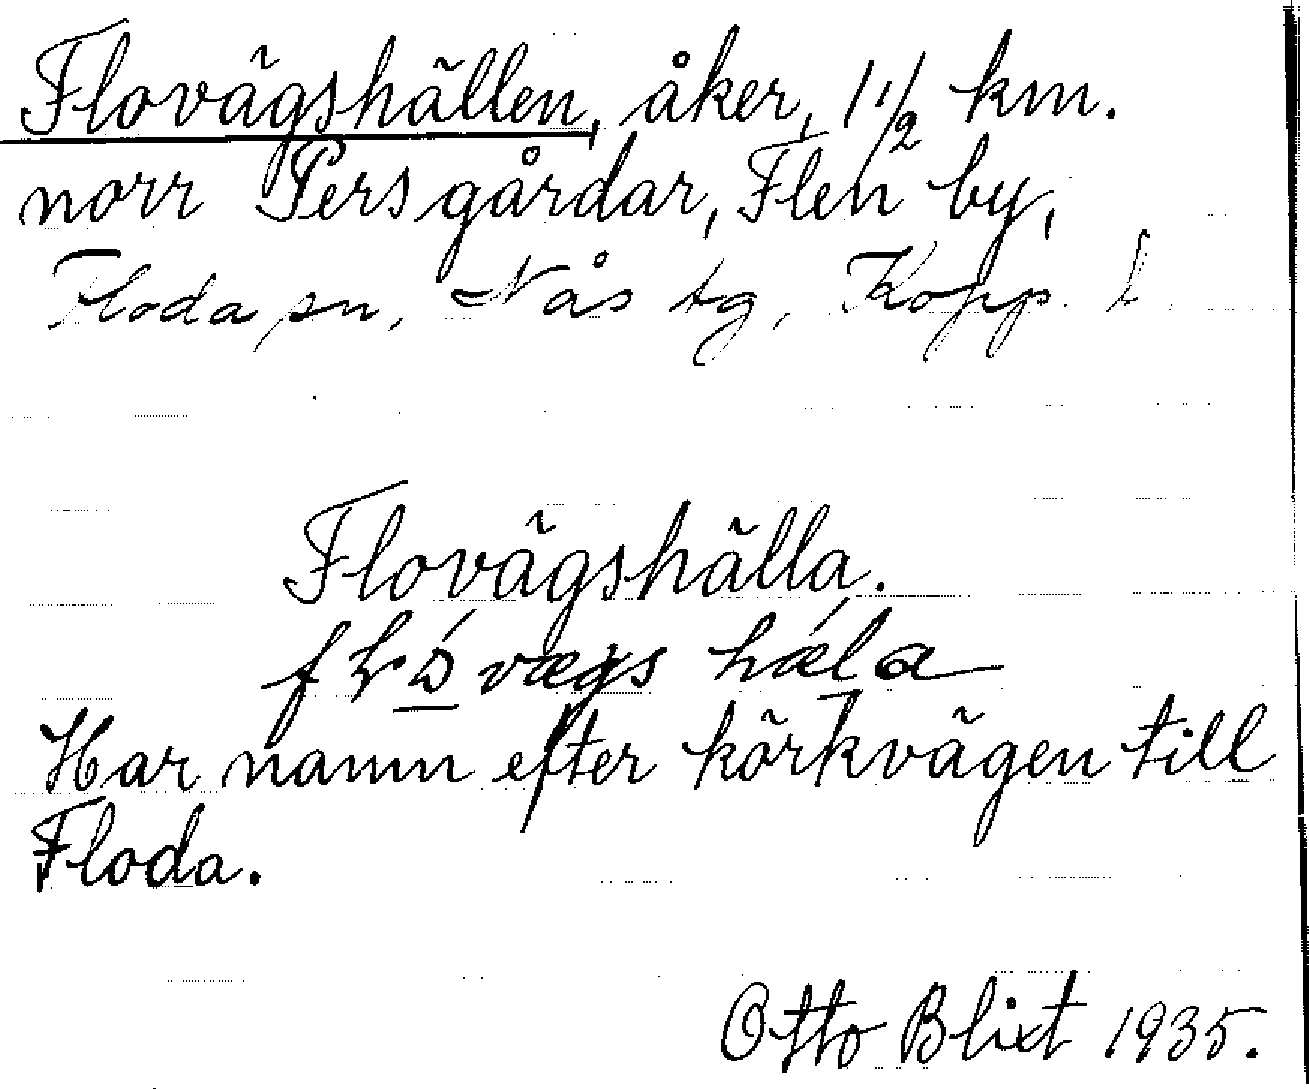 Flovägshällen, åker, 1 1/2 km.
norr Persgårdar, Flen by,
Floda sn, Nås tg, Kopp. l
Flovägshälla.
Har namn efter körkvägen till
Floda.
Otto Blixt 1935.